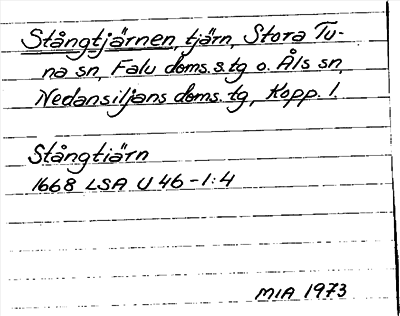 Stångtjärnen, tjärn, Stora Tu-
na sn, Falu doms.s.tg o. Åls sn,
Nedansiljans doms. tg, Kopp. l.
Stångtiärn
1668 LSA U 46-1:4
MIA 1973